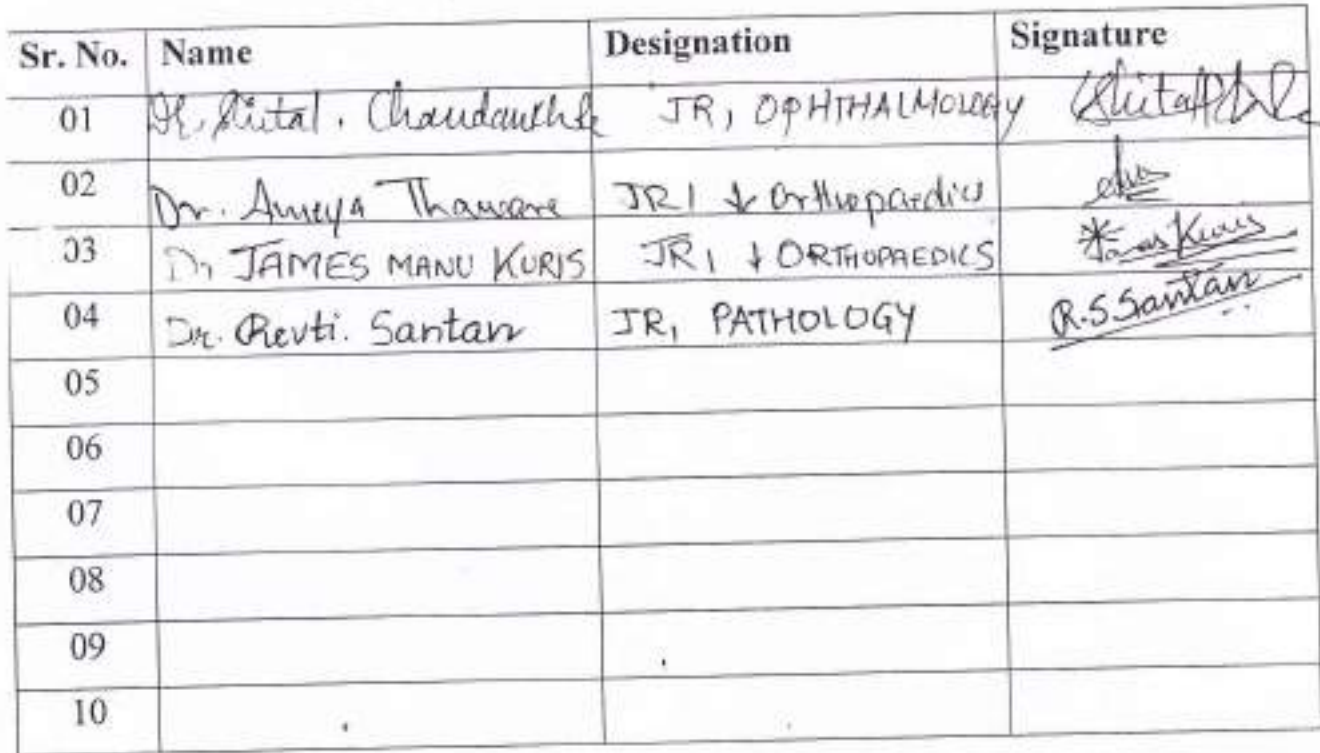 Sr. No. Name Designation Signature
01 Dr. Shital. Chandankhede JR1 OPHTHALMOLOGY
02 Dr. Ameya Thaware JR1 Orthopaedics
03 Dr JAMES MANU KURIS JR1 ORTHOPAEDICS James Kuris
04 Dr. Revti. Santan JR1 PATHOLOGY R.S Santan
05
06
07
08
09
10